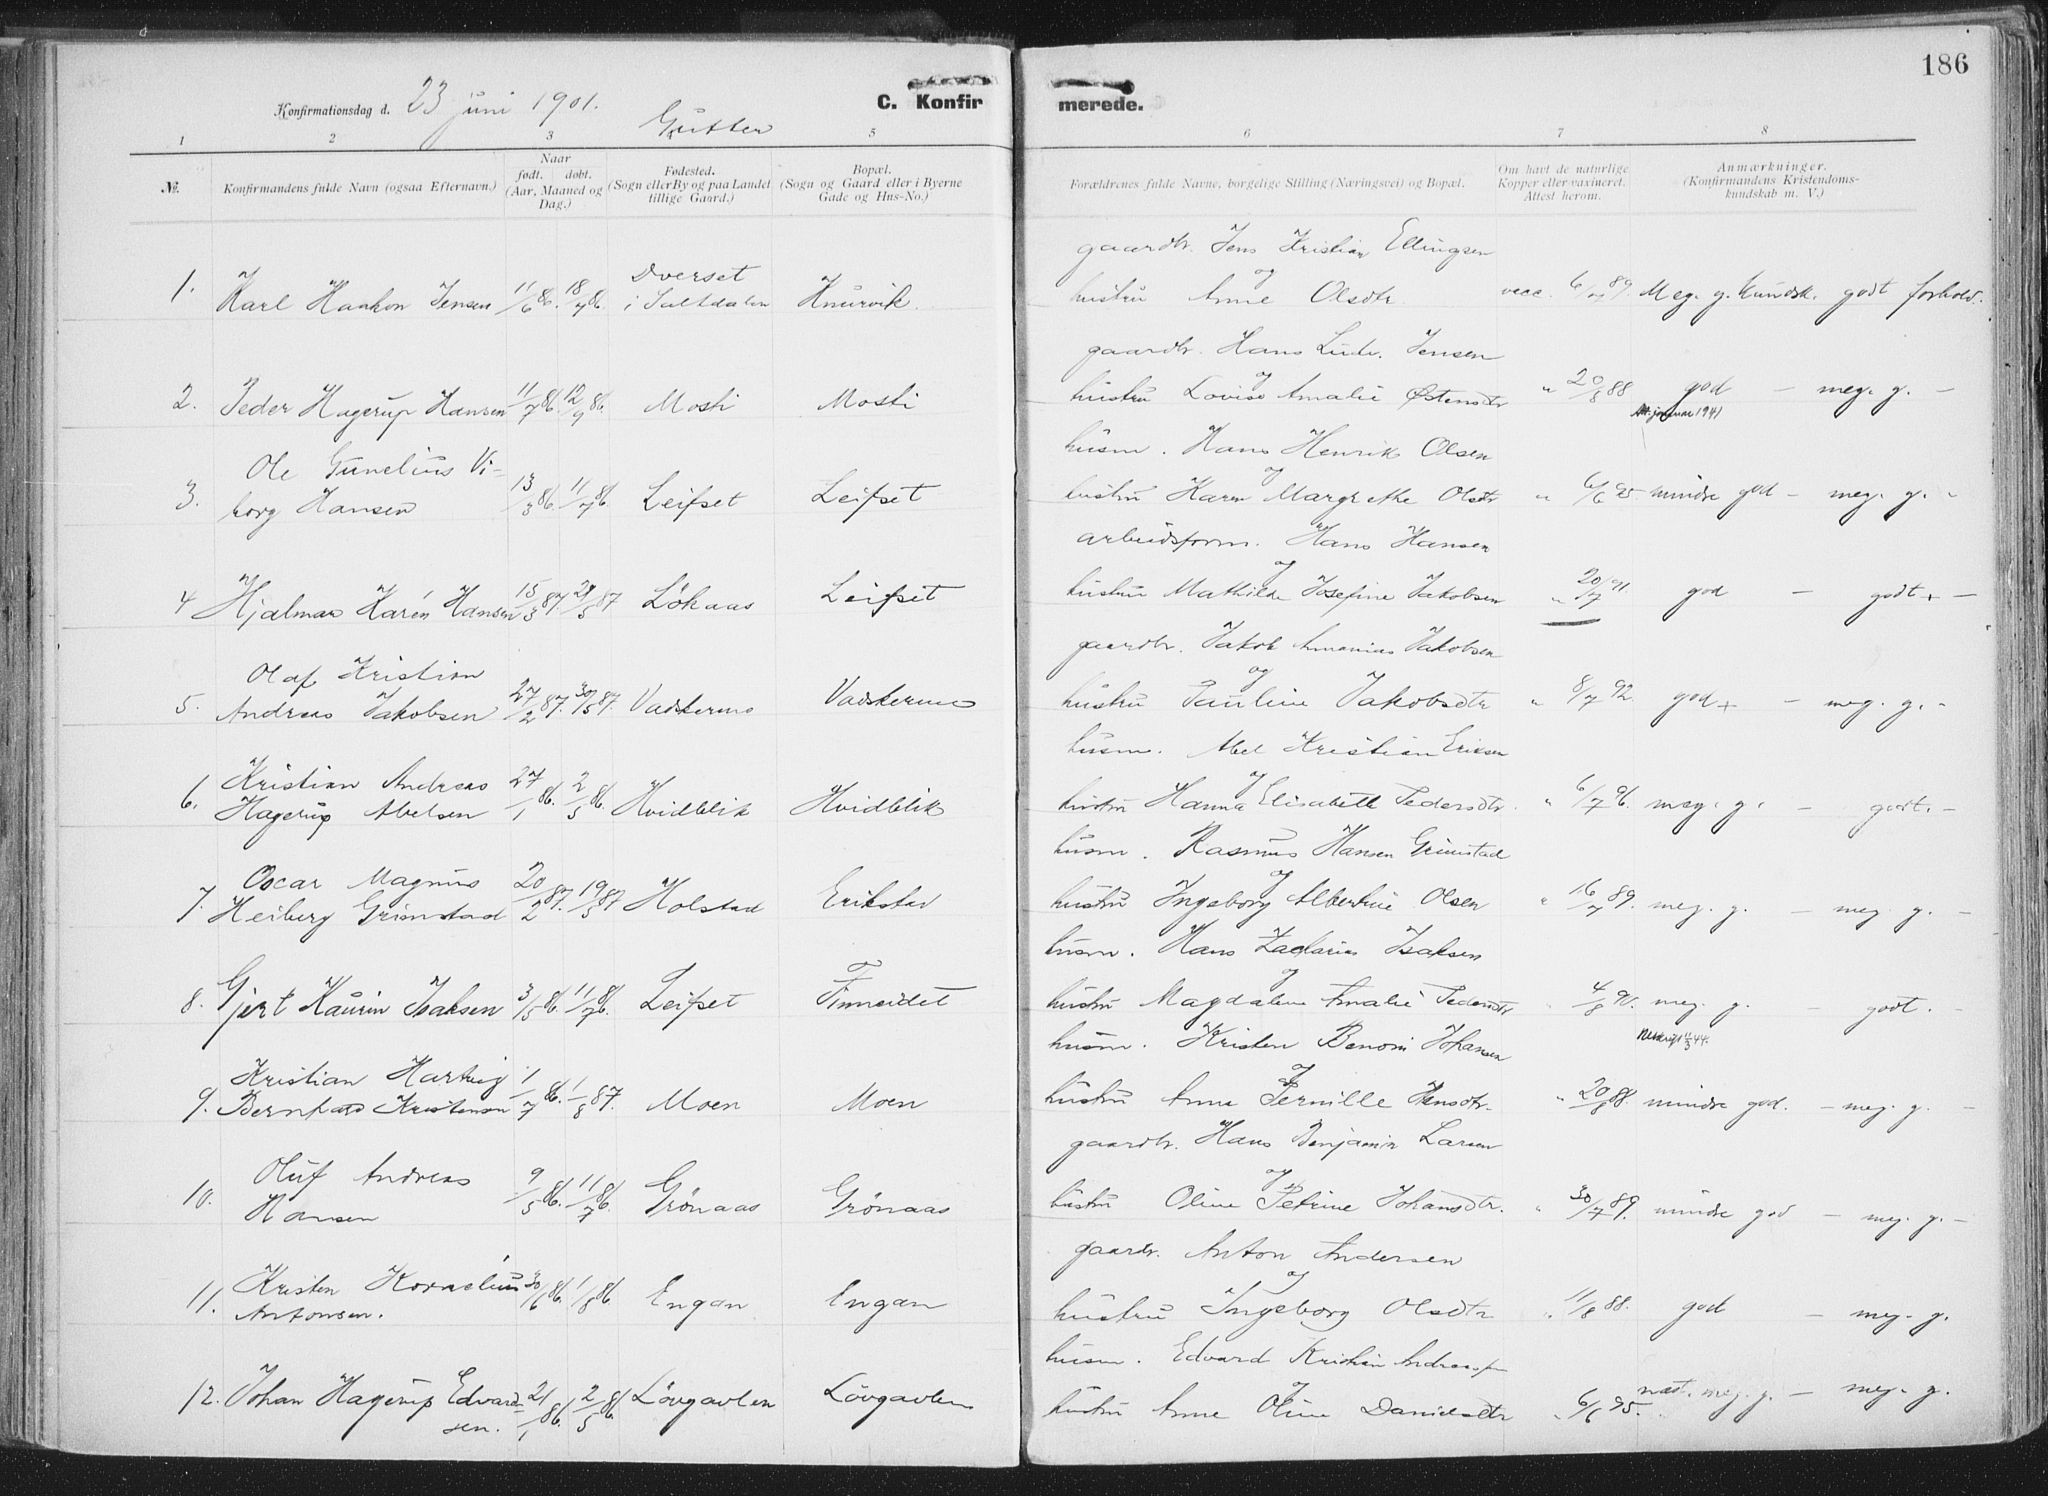 186
Konfirmationsdag d. 23 juni 1901.
C. Konfirmerede.
Gutter
1 2 3 5 6 7 8
№.
Konfirmandens fulde Navn (ogsaa Efternavn.)
Naar
født. døbt.
(Aar, Maaned og Dag.)
Fødested.
(Sogn eller By og paa Landet tillige Gaard.)
Bopæl.
(Sogn og Gaard eller i Byerne Gade og Hus-No.)
Forældrenes fulde Navne, borgelige Stilling (Næringsvei) og Bopæl.
Om havt de naturlige Kopper eller vaxineret. Attest herom.
Anmærkninger.
(Konfirmandens Kristendomskundskab m. V.)
gaardbr. Jens Kristian Ellingsen
og
1. Karl Haakon Jensen 11/6 86. 18/7 86. Dverset i Saltdalen Knurvik. hustru Anne Olsdtr. vacc. 6/7 89. Meg. g. kundsk. godt forhold.
gaardbr. Hans Ludv. Jensen
og
2. Peder Hagerup Hansen 11/7 86. 12/9 86. Mosti Mosti hustru Lovise Amalie Østensdtr " 20/8 88 god - meg. g. -
januar 1941
husm. Hans Henrik Olsen
og
3. Ole Gunelius Viborg Hansen 13/3 86. 11/7 86. Leifset Leifset hustru Karen Margrethe Olsdtr " 6/6 95. mindre god - meg. g. -
arbeidsform. Hans Hansen
og
4 Hjalmar Karén Hansen 15/3 87. 29/5 87 Løkaas Leifset hustru Mathilde Josefine Jakobsen " 20/7 91. god - godt + -
gaardbr. Jakob Ananias Jakobsen
og
5. Olaf Kristian Andreas Jakobsen 27/2 87. 30/5 87. Vadskermo Vadskermo hustru Pauline Jakobsdtr " 8/7 92. god + - meg. g. -
husm. Abel Kristian Eriksen
og
6. Kristian Andreas Hagerup Abelsen 27/1 86. 2/5 86. Hvidblik Hvidblik hustru Hanna Elisabeth Pedersdtr. " 6/7 96. meg. g. - godt. -
husm. Rasmus Hansen Grimstad
og
7. Oscar Magnus Heiberg Grimstad 20/2 87. 19/5 87 Holstad Erikstad hustru Ingeborg Albertine Olsen " 16/7 89. meg. g. - meg. g. -
husm. Hans Zacharias Isaksen
og
8. Gjert Kaurin Isaksen 3/5 86. 11/7 86. Leifset Finneidet hustru Magdalene Amalie Pedersdtr " 4/8 90. meg. g. - godt. -
husm. Kristen Benoni Johansen
og
9. Kristian Hartvig Bernhard Kristensen 1/7 86. 1/8 87. Moen Moen hustru Anna Pernille Hansdtr. " 20/8 88. mindre god. - meg. g. -
gaardbr. Hans Benjamin Larsen
og
10. Oluf Andreas Hansen 9/5 86. 11/7 86. Grönaas Grönaas hustru Oline Petrine Johansdtr. " 30/7 89. mindre god - meg. g. -
gaardbr. Anton Andersen
og
11. Kristen Kornelius Antonsen. 30/6 86. 1/8 86. Engan Engan hustru Ingeborg Olsdtr " 11/8 88. god - meg. g.
husm. Edvard Kristian Andreassen
og
12. Johan Hagerup Edvardsen. 21/1 86. 2/5 86. Lövgavlen Lövgavlen hustru Anne Oline Danielsdtr " 6/6 95. næst. meg. g. - meg. g.